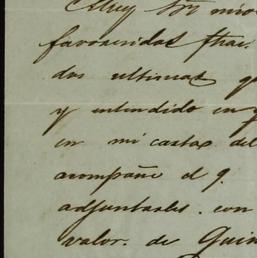 Muy Sor mio
favorecidas fha.
dos ultimas q
y entendido en
en mi carta del
acompañe el q.
adjuntarles con
valor de Quin